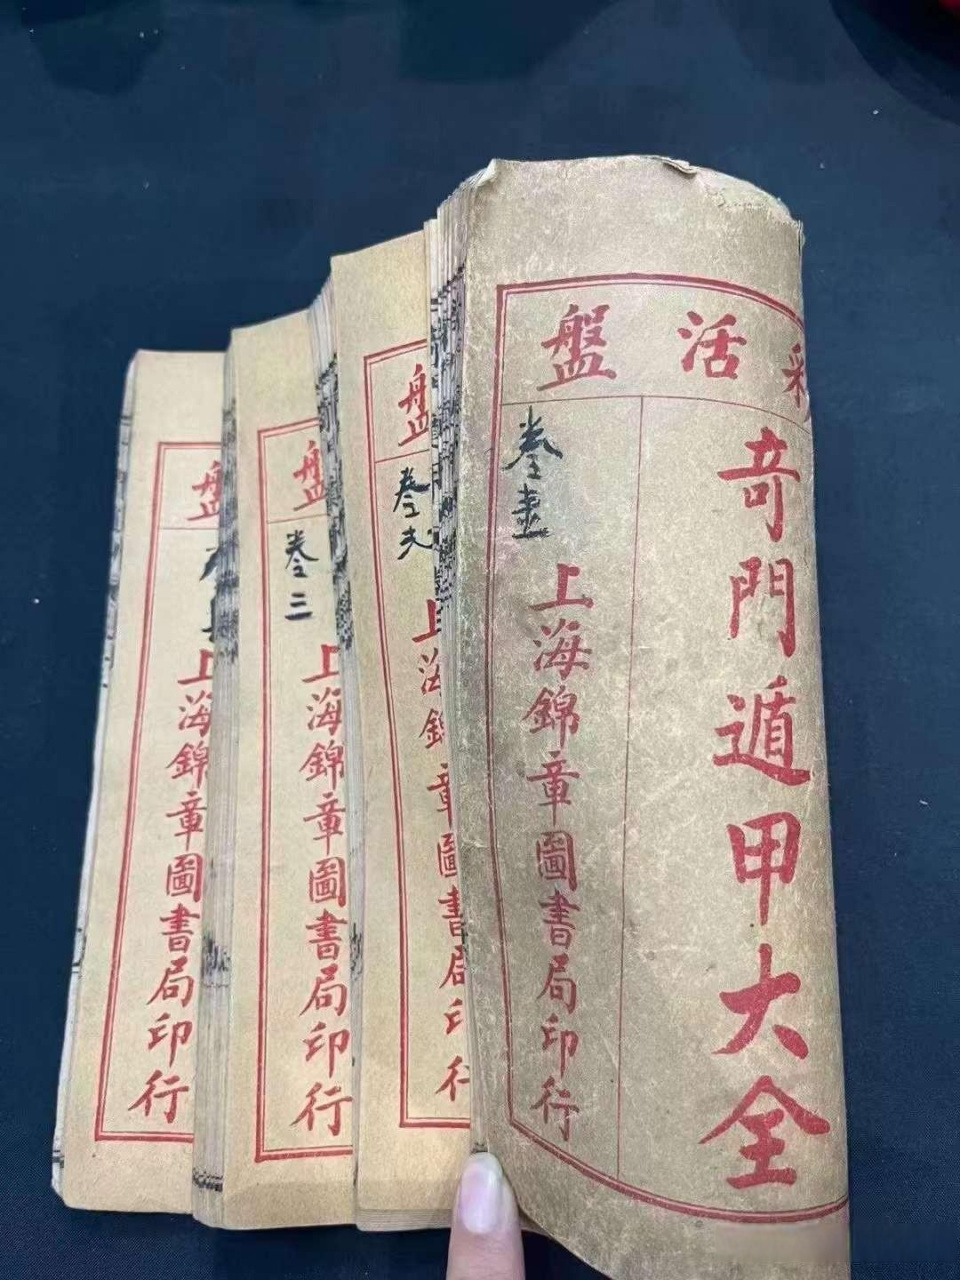 彩活盤
奇門遁甲大全
卷壹
上海錦章圖書局印行
盤
卷
上海錦章圖書局印行
盤
卷三
上海錦章圖書局印行
盤
上海錦章圖書局印行